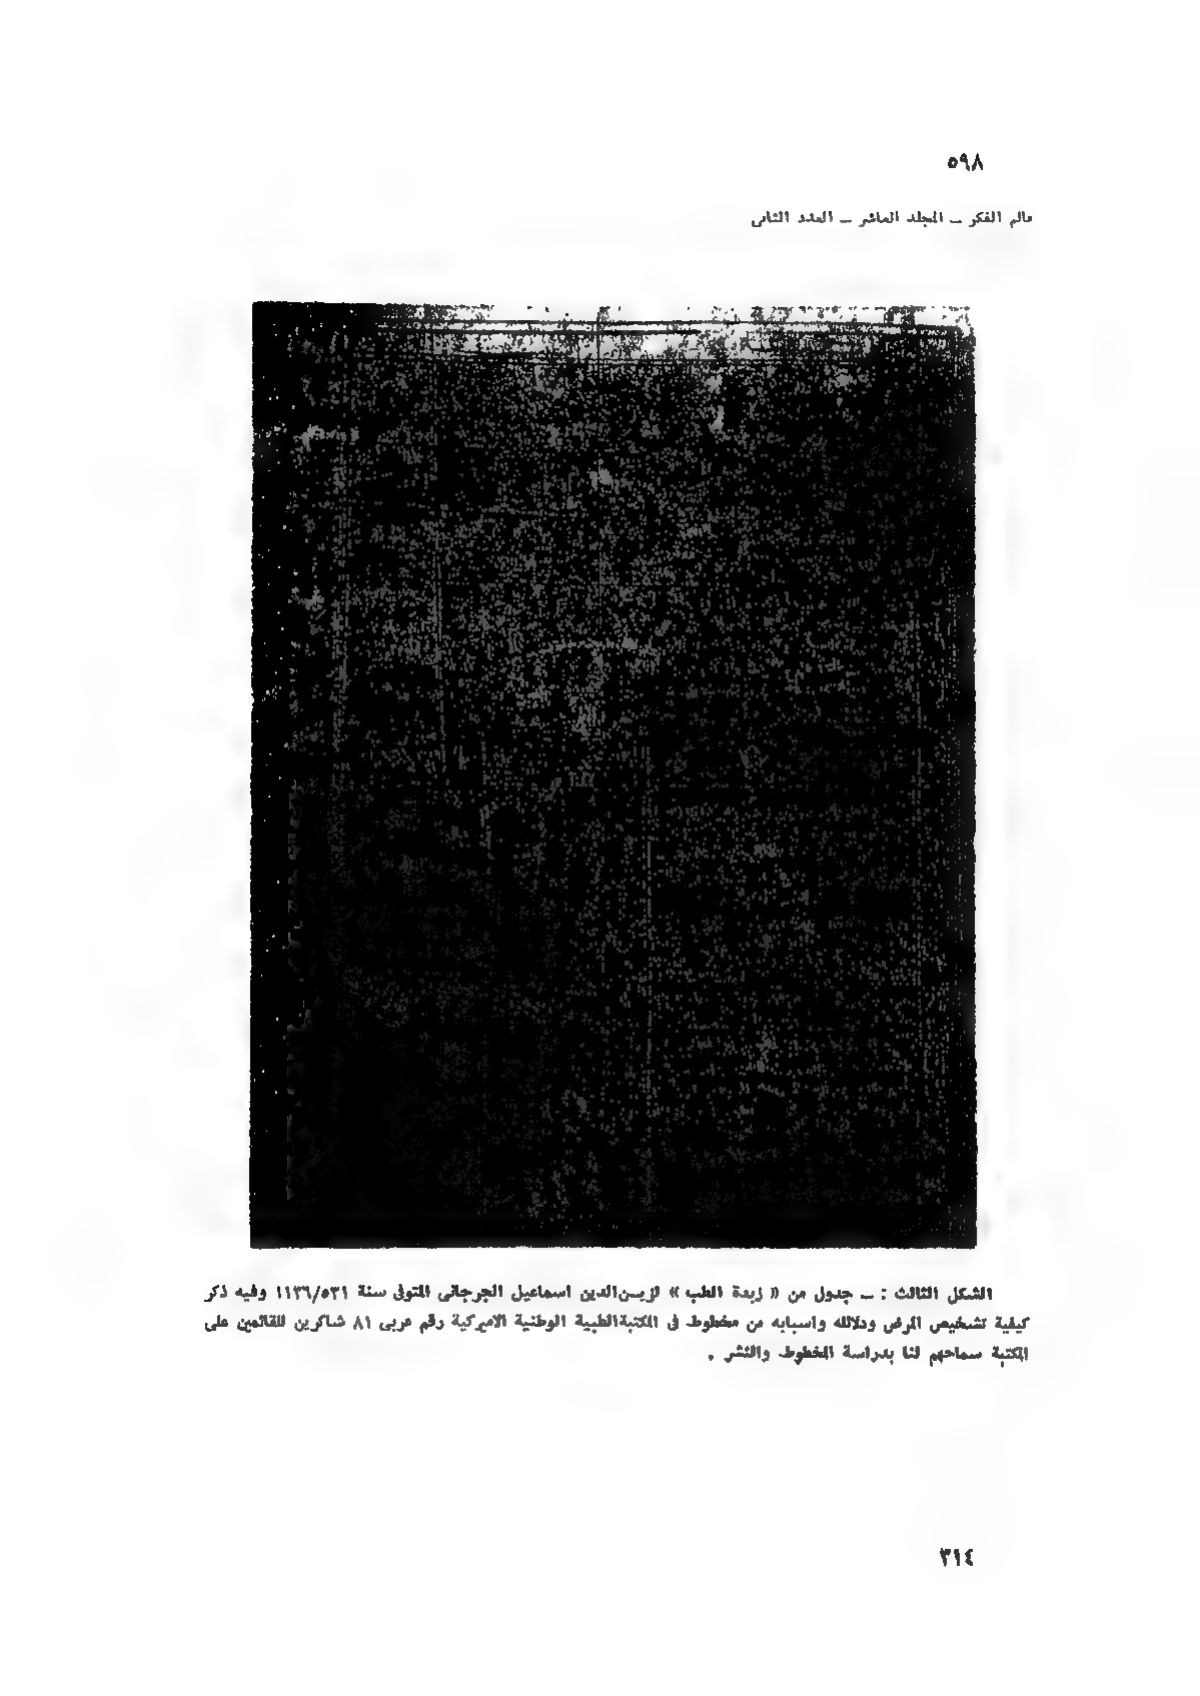 ٥٩٨
عالم الفكر – المجلد العاشر – العدد الثانى
الشكل الثالث : – جدول من « زبدة الطب » لزيـن الدين اسماعيل الجرجانى المتوفى سنة ١١٣٦/٥٣١ وفيه ذكر
كيفية تشخيص المرض ودلائله واسبابه من مخطوط فى المكتبة الطبية الوطنية الاميركية رقم عربى ٨١ شاكرين للقائمين على
المكتبة سماحهم لنا بدراسة المخطوط والنشر .
٣١٤